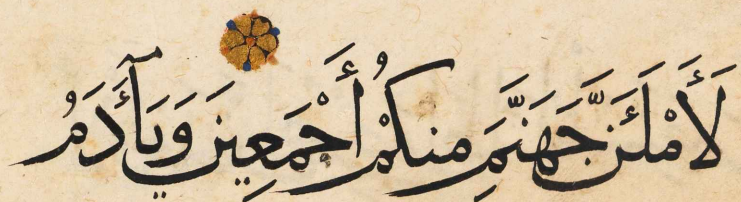 لَأَمْلَئَنَّ جَهَنَّمَ مِنكُمْ أَجْمَعِينَ وَيَآءَدَمُ